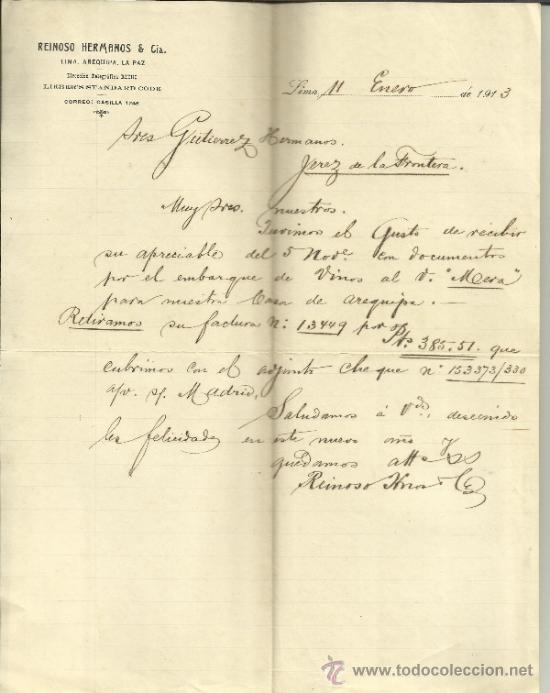 REINOSO HERMANOS & Cía.
LIMA, AREQUIPA, LA PAZ
Dirección Telegráfica
LIEBER'S STANDARD CODE
CORREO: CASILLA
Lima, 11 Enero de 1913
Sres Gutierrez Hermanos.
Jerez de la Frontera.
Muy Sres. nuestros.
Tuvimos el Gusto de recibir
su apreciable del 5 Nove con documentos
por el embarque de Vinos al v. "Mera"
para nuestra Casa de Arequipa.—
Retiramos su factura Nº: 13449 por
Pts 385.51. que
cubrimos con el adjunto cheque nº 153373/330
a/v. s/. Madrid,
Saludamos á Vds, deseando
les felicidades en este nuevo año y
quedamos atts SS
Reinoso Hnos Ca
www.todocoleccion.net